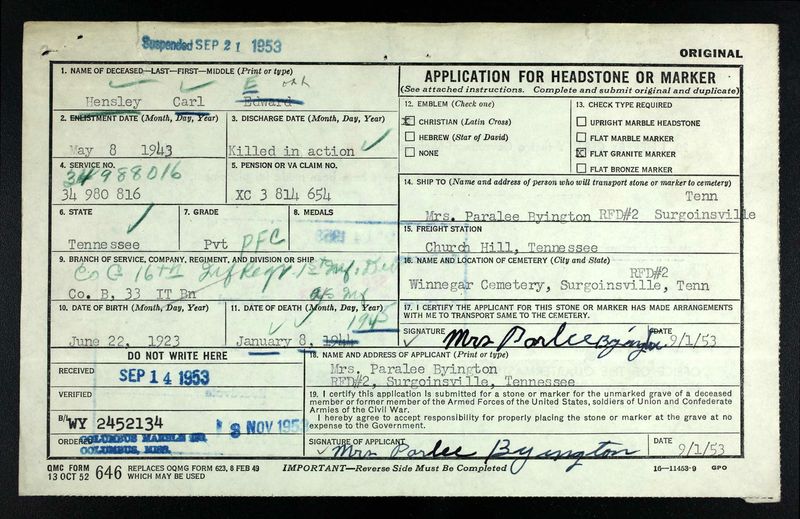 Suspended SEP 21 1953
ORIGINAL
1. NAME OF DECEASED—LAST—FIRST—MIDDLE (Print or type)
E
Hensley Carl Edward
2. ENLISTMENT DATE (Month, Day, Year)
May 8 1943
3. DISCHARGE DATE (Month, Day, Year)
Killed in action
4. SERVICE NO.
34988016
34 980 816
5. PENSION OR VA CLAIM NO.
XC 3 814 654
6. STATE
Tennessee
7. GRADE
Pvt PFC
8. MEDALS
9. BRANCH OF SERVICE, COMPANY, REGIMENT, AND DIVISION OR SHIP
Co G 16th Inf Regt 1st Inf
Co. B, 33 IT Bn
10. DATE OF BIRTH (Month, Day, Year)
June 22, 1923
11. DATE OF DEATH (Month, Day, Year)
1945
January 8, 1944
DO NOT WRITE HERE
RECEIVED
SEP 14 1953
VERIFIED
B/L WY 2452134
18 NOV 1953
ORDERED
COLUMBUS MARBLE
COLUMBUS, MISS.
APPLICATION FOR HEADSTONE OR MARKER
(See attached instructions. Complete and submit original and duplicate)
12. EMBLEM (Check one)
CHRISTIAN (Latin Cross)
HEBREW (Star of David)
NONE
13. CHECK TYPE REQUIRED
UPRIGHT MARBLE HEADSTONE
FLAT MARBLE MARKER
FLAT GRANITE MARKER
FLAT BRONZE MARKER
14. SHIP TO (Name and address of person who will transport stone or marker to cemetery)
Tenn
Mrs. Paralee Byington RFD#2 Surgoinsville
15. FREIGHT STATION
Church Hill, Tennessee
16. NAME AND LOCATION OF CEMETERY (City and State)
RFD#2
Winnegar Cemetery, Surgoinsville, Tenn
17. I CERTIFY THE APPLICANT FOR THIS STONE OR MARKER HAS MADE ARRANGEMENTS
WITH ME TO TRANSPORT SAME TO THE CEMETERY.
SIGNATURE Mrs Parlee Byington DATE 9/1/53
18. NAME AND ADDRESS OF APPLICANT (Print or type)
Mrs. Paralee Byington
RFD#2, Surgoinsville, Tennessee
19. I certify this application is submitted for a stone or marker for the unmarked grave of a deceased
member or former member of the Armed Forces of the United States, soldiers of Union and Confederate
Armies of the Civil War.
I hereby agree to accept responsibility for properly placing the stone or marker at the grave at no
expense to the Government.
SIGNATURE OF APPLICANT DATE
Mrs Parlee Byington 9/1/53
QMC FORM 646 REPLACES OQMG FORM 623, 8 FEB 49
13 OCT 52 WHICH MAY BE USED
IMPORTANT—Reverse Side Must Be Completed
16—11453-9 GPO